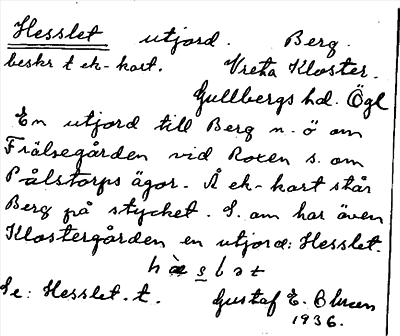 Hesslet utjord. Berg.
beskr t ek-kart. Vreta Kloster.
Gullbergs hd. Ögl
En utjord till Berg n. ö om
Frälsegården vid Roxen s. om
Pålstorps ägor. Å ek-kart står
Berg på stycket. S. om har även
Klostergården en utjord: Hesslet.
hæslət
Se: Hesslet. t. Gustaf E.
1936.